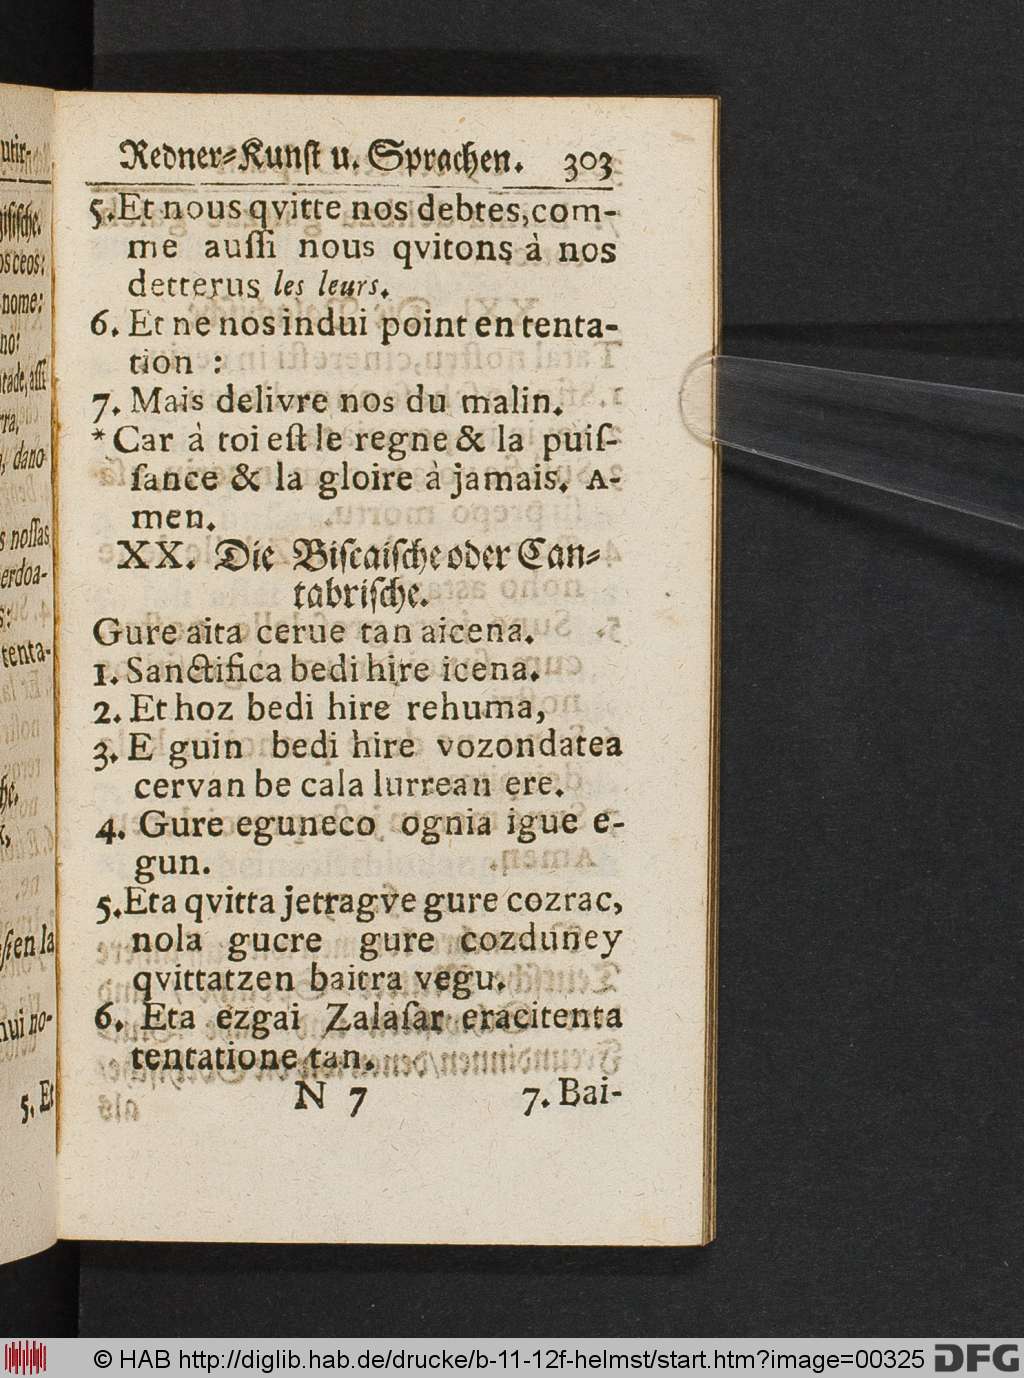 Redner-Kunſt u. Sprachen. 303
5. Et nous qvitte nos debtes, com-
me auſſi nous qvitons à nos
detterus les leurs.
6. Et ne nos indui point en tenta-
tion :
7. Mais delivre nos du malin.
* Car à toi eſt le regne & la puiſ-
ſance & la gloire à jamais. A-
men.
XX. Die Biſcaiſche oder Can-
tabriſche.
Gure aita cerue tan aicena.
1. Sanctifica bedi hire icena.
2. Et hoz bedi hire rehuma,
3. E guin bedi hire vozondatea
cervan be cala lurrean ere.
4. Gure eguneco ognia igue e-
gun.
5. Eta qvitta jetragve gure cozrac,
nola gucre gure cozduney
qvittatzen baitra vegu.
6. Eta ezgai Zalaſar eracitenta
tentatione tan.
N 7 7. Bai-
© HAB http://diglib.hab.de/drucke/b-11-12f-helmst/start.htm?image=00325 DFG